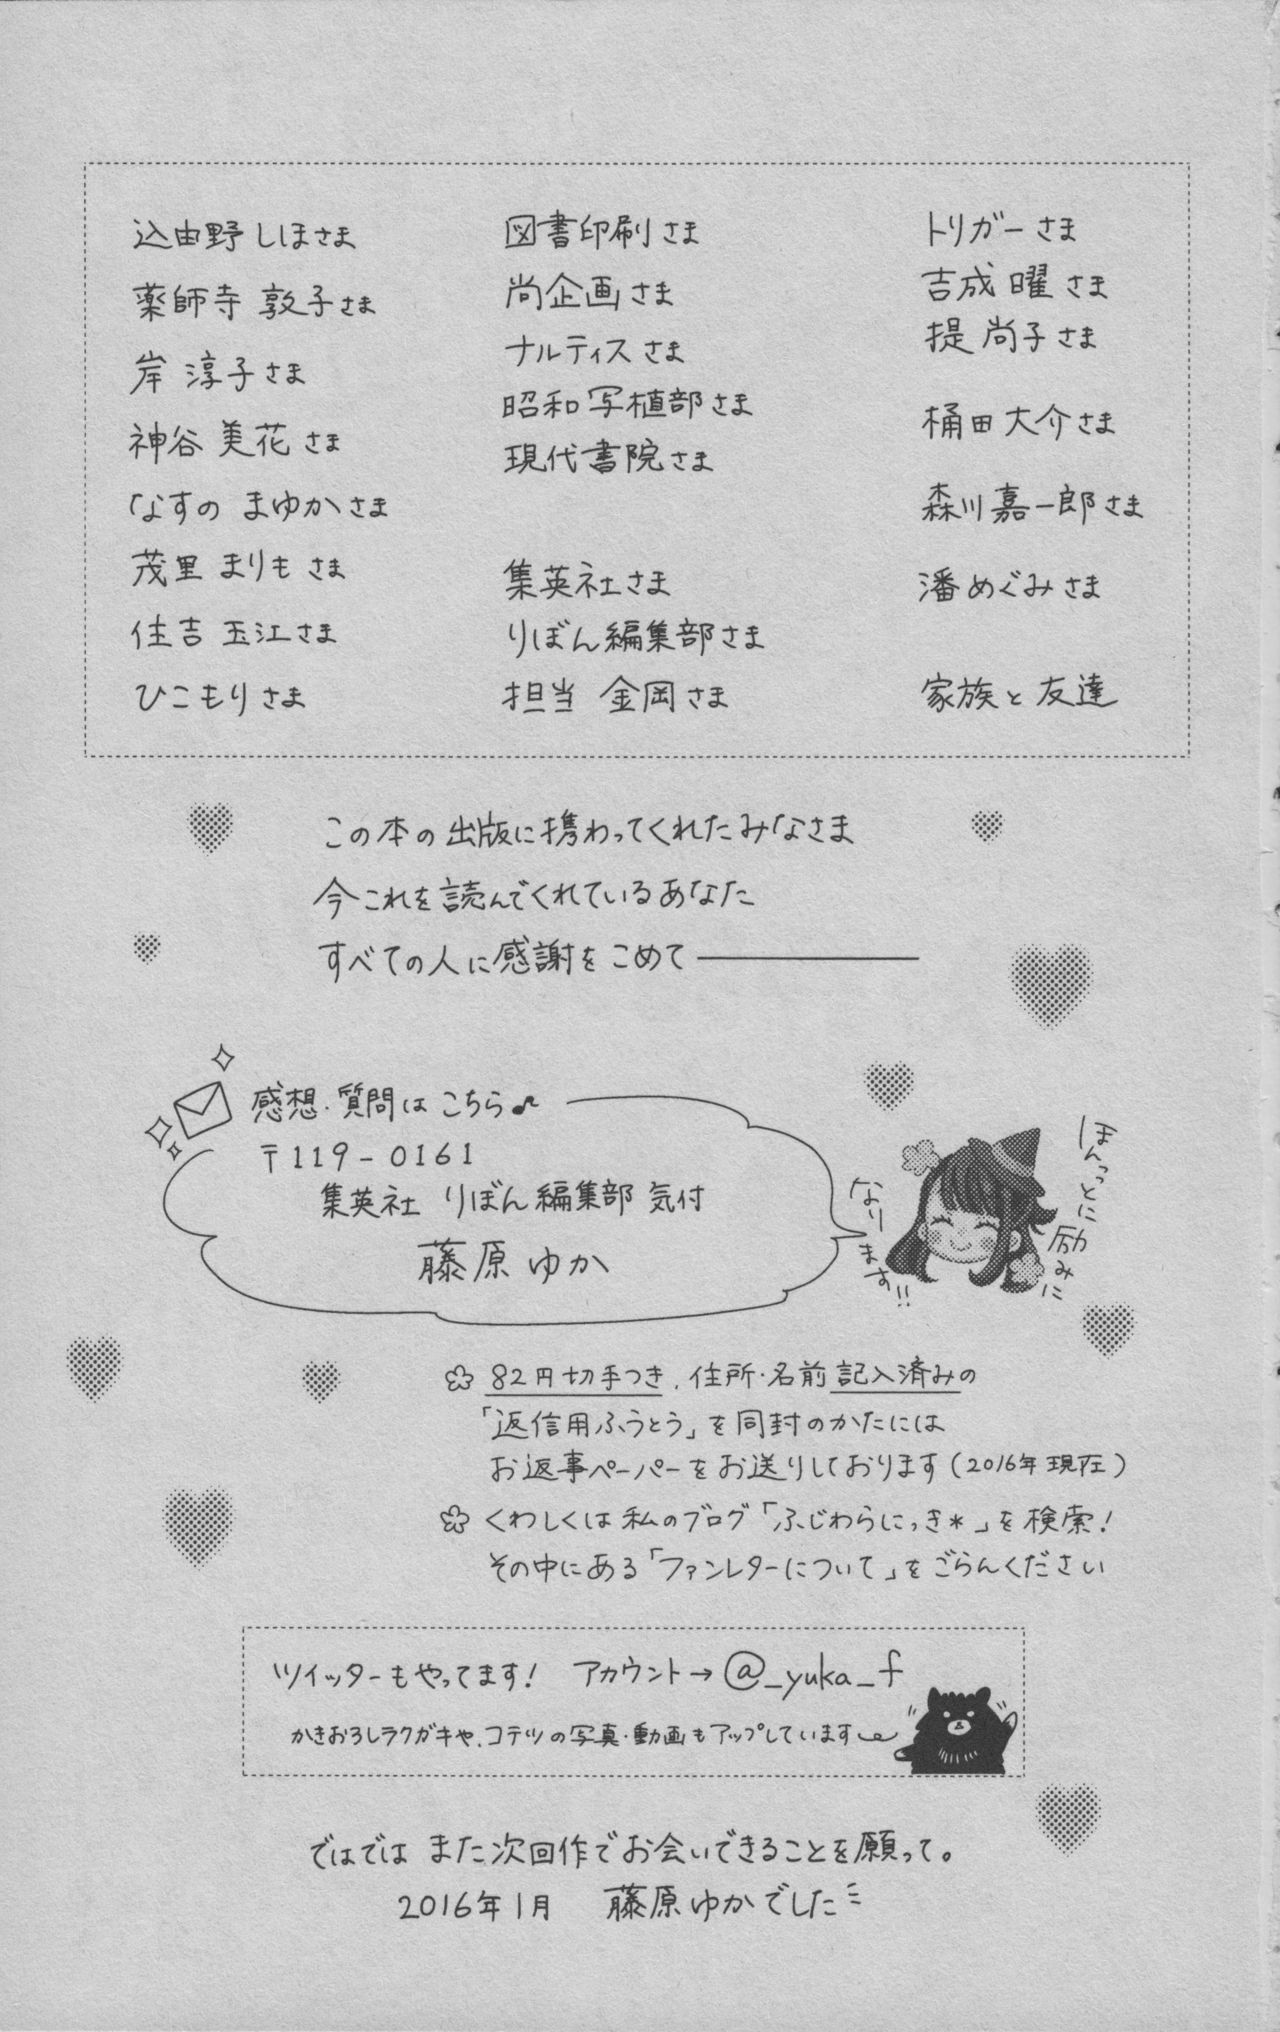 込由野 しほさま
薬師寺 敦子さま
岸 淳子さま
神谷 美花さま
なすの まゆかさま
茂里 まりも さま
住吉 玉江さま
ひこもりさま
図書印刷さま
尚企画さま
ナルティスさま
昭和写植部さま
現代書院さま
集英社さま
りぼん編集部さま
担当 金岡さま
トリガーさま
吉成 曜さま
提 尚子さま
桶田大介さま
森川嘉一郎さま
潘めぐみさま
家族と友達
この本の出版に携わってくれたみなさま
今これを読んでくれているあなた
すべての人に感謝をこめて――――
感想・質問はこちら♪
〒119-0161
集英社 りぼん編集部 気付
藤原ゆか
ほんっとに励みに
なります!!
82円切手つき、住所・名前記入済みの
「返信用ふうとう」を同封のかたには
お返事ペーパーをお送りしております(2016年現在)
くわしくは私のブログ「ふじわらにっき*」を検索!
その中にある「ファンレターについて」をごらんください
ツイッターもやってます! アカウント→@_yuka_f
かきおろしラクガキや、コテツの写真・動画もアップしています
ではでは また次回作でお会いできることを願って。
2016年1月 藤原ゆかでした